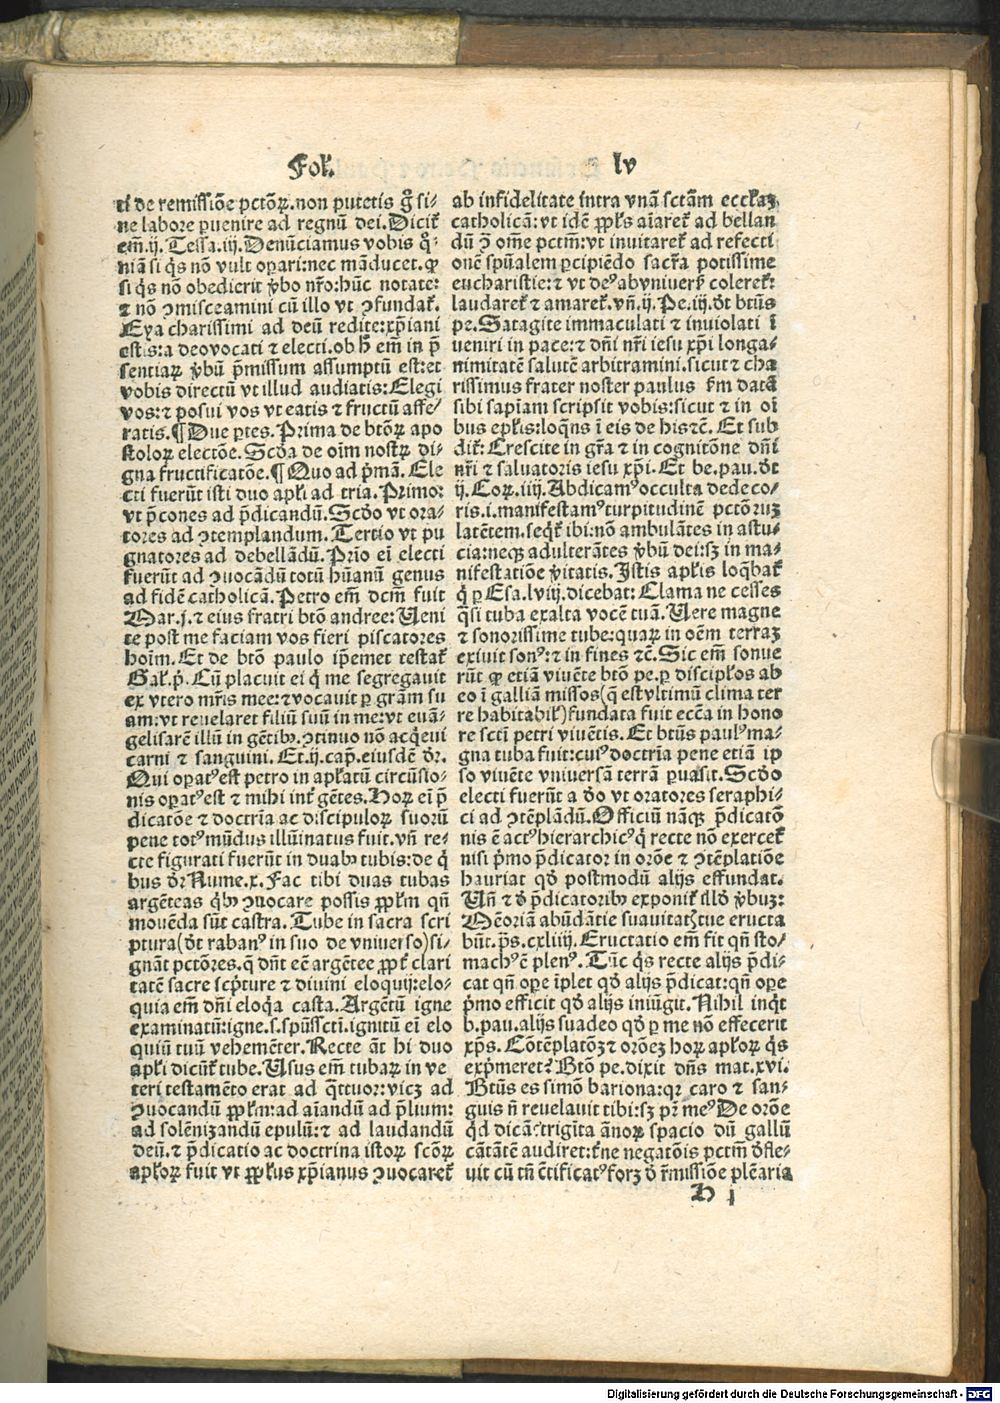 Fol. lv
ti de remissiōe pctōꝝ. non putetis g̊ si-
ne labore ꝑuenire ad regnū dei. Dicit̄
em̄. ij. Tessa. iij. Denūciamus vobis qm̄-
niā si q̇s nō vult oꝑari: nec māducet. ꝙ
si q̇s nō obedierit ꝟbo nr̄o: hūc notate:
⁊ nō ꝯmisceamini cū illo vt ꝯfundat̄.
Eya charissimi ad deū redite: xp̄iani
estis: a deo vocati ⁊ electi. ob hͦ em̄ in p̄
sentiaꝝ ꝟbū p̄missum assumptū est: et
vobis directū vt illud audiatis: Elegi
vos: ⁊ posui vos vt eatis ⁊ fructū affe-
ratis. ¶ Due ꝑtes. Prima de btōꝝ apo
stoloꝝ electōe. Scd̄a de oīm nostꝝ di-
gna fructificatōe. ¶ Quo ad p̄mā. Ele
cti fuerūt isti duo apl̄i ad tria. Primo:
vt p̄cones ad p̄dicandū. Scd̄o vt ora-
tores ad ꝯtemplandum. Tertio vt pu
gnatores ad debellādū. Prīo em̄ electi
fuerūt ad ꝯuocādū totū hūanū genus
ad fidē catholicā. Petro em̄ dcm̄ fuit
Mar. j. ⁊ eius fratri btō andree: Ueni
te post me faciam vos fieri piscatores
hoīm. Et de btō paulo ip̄emet testat̄
Gal. p̄. Cū placuit ei q̇ me segregauit
ex vtero mr̄is mee: ⁊ vocauit ꝑ grām su
am: vt reuelaret filiū suū in me: vt euā-
gelisarē illū in gētibꝰ. ꝯtinuo nō acq̇eui
carni ⁊ sanguini. Et. ij. cap̄. eiusdē dr̄.
Qui oꝑatꝰ est petro in apl̄atū circūsio-
nis oꝑatꝰ est ⁊ mihi int̄ gētes. Hoꝝ em̄ p̄
dicatōe ⁊ doctrīa ac discipuloꝝ suoꝝ
pene totꝰ mūdus illūinatus fuit. vn̄ re-
cte figurati fuerūt in duabꝰ tubis: de q̇
bus dr̄ Nume. x. Fac tibi duas tubas
argēteas q̇bꝰ ꝯuocare possis ppl̄m qn̄
mouēda sūt castra. Tube in sacra scri
ptura (vt rabanꝰ in suo de vniuerso) si-
gnāt pctōres. q̇ dn̄t eē argētee ꝓpt̄ clari
tatē sacre scp̄ture ⁊ diuini eloquij: elo-
quia em̄ dn̄i eloq̇a casta. Argētū igne
examinatū: igne. s. spūssctī. ignitū em̄ elo
quiū tuū vehemēter. Recte āt hi duo
apl̄i dicūt̄ tube. Usus em̄ tubaꝝ in ve
teri testamēto erat ad q̇ttuor: vicꝫ ad
ꝯuocandū ppl̄m: ad aīandū ad p̄lium:
ad solēnizandū epulū: ⁊ ad laudandū
deū. ⁊ p̄dicatio ac doctrina istoꝝ scōꝝ
apl̄oꝝ fuit vt ppl̄us xp̄ianus ꝯuocaret̄
ab infidelitate intra vnā sctām eccl̄iaꝫ
catholicā: vt idē ppl̄s aīaret̄ ad bellan
dū ꝯ om̄e pctm̄: vt inuitaret̄ ad refecti
onē spūalem ꝑcipiēdo sacr̄a potissime
eucharistie: ⁊ vt deꝰ ab vniuers̄ coleret̄:
laudaret̄ ⁊ amaret̄. vn̄. ij. Pe. iij. dt̄ btūs
pe. Satagite immaculati ⁊ inuiolati ī
ueniri in pace: ⁊ dn̄i nr̄i iesu xp̄i longa-
nimitatē salutē arbitramini. sicut ⁊ cha
rissimus frater noster paulus s̄m datā
sibi sapīam scripsit vobis: sicut ⁊ in oī
bus epl̄is: loq̄ns ī eis de his ⁊c̄. Et sub
dit̄: Crescite in gr̄a ⁊ in cognitōne dn̄i
nr̄i ⁊ saluatoris iesu xp̄i. Et be. pau. dt̄
ij. Coꝝ. iiij. Abdicamꝰ occulta dedeco-
ris. i. manifestamꝰ turpitudinē pctōruꝫ
latētem. seq̇t̄ ibi: nō ambulātes in astu-
cia: neqꝫ adulterātes ꝟbū dei: sꝫ in ma-
nifestatiōe ꝟitatis. Istis apl̄is loq̇bat̄
q̇ ꝑ Esa. lviij. dicebat: Clama ne cesses
q̄si tuba exalta vocē tuā. Uere magne
⁊ sonorissime tube: quaꝝ in oēm terraꝫ
exiuit sonꝰ: ⁊ in fines ⁊c̄. Sic em̄ sonue
rūt ꝙ etiā viuēte btō pe. ꝑ discipl̄os ab
eo ī galliā missos (q̄ est vltimū clima ter
re habitabil̄) fundata fuit ecc̄a in hono
re sctī petri viuētis. Et btūs paulꝰ ma-
gna tuba fuit: cuiꝰ doctrīa pene etiā ip
so viuēte vniuersā terrā ꝑuasit. Scd̄o
electi fuerūt a d̄o vt oratores seraphi-
ci ad ꝯtēplādū. Officiū nāqꝫ p̄dicatō
nis ē actꝰ hierarchicꝰ q̇ recte nō exercet̄
nisi p̄mo p̄dicator in orōe ⁊ ꝯtēplatiōe
hauriat qd̄ postmodū alijs effundat.
Un̄ ⁊ d̄ p̄dicatoribꝰ exponit̄ illd̄ ꝟbuꝫ:
Mēoriā abūdātie suauitatꝭ tue eructa
būt. p̄s. cxliiij. Eructatio em̄ fit qn̄ sto-
machꝰ ē plenꝰ. Tūc q̇s recte alijs p̄di-
cat qn̄ oꝑe īplet qd̄ alijs p̄dicat: qn̄ oꝑe
p̄mo efficit qd̄ alijs iniūgit. Nihil inq̇t
b. pau. alijs suadeo qd̄ ꝑ me nō effecerit
xp̄s. Cōtēplatōꝫ ⁊ orōeꝫ hoꝝ apl̄oꝝ q̇s
exp̄meret? Btō pe. dixit dn̄s mat. xvi.
Btūs es simō bariona: qꝛ caro ⁊ san-
guis n̄ reuelauit tibi: sꝫ pr̄ meꝰ De orōe
qd̄ dicā: trigīta ānoꝝ spacio dū gallū
cātātē audiret: ne negatōis pctm̄ defle-
uit cū tn̄ c̄tificatꝰ forꝫ d̄ r̄missiōe plēaria
H j
Digitalisierung gefördert durch die Deutsche Forschungsgemeinschaft - DFG